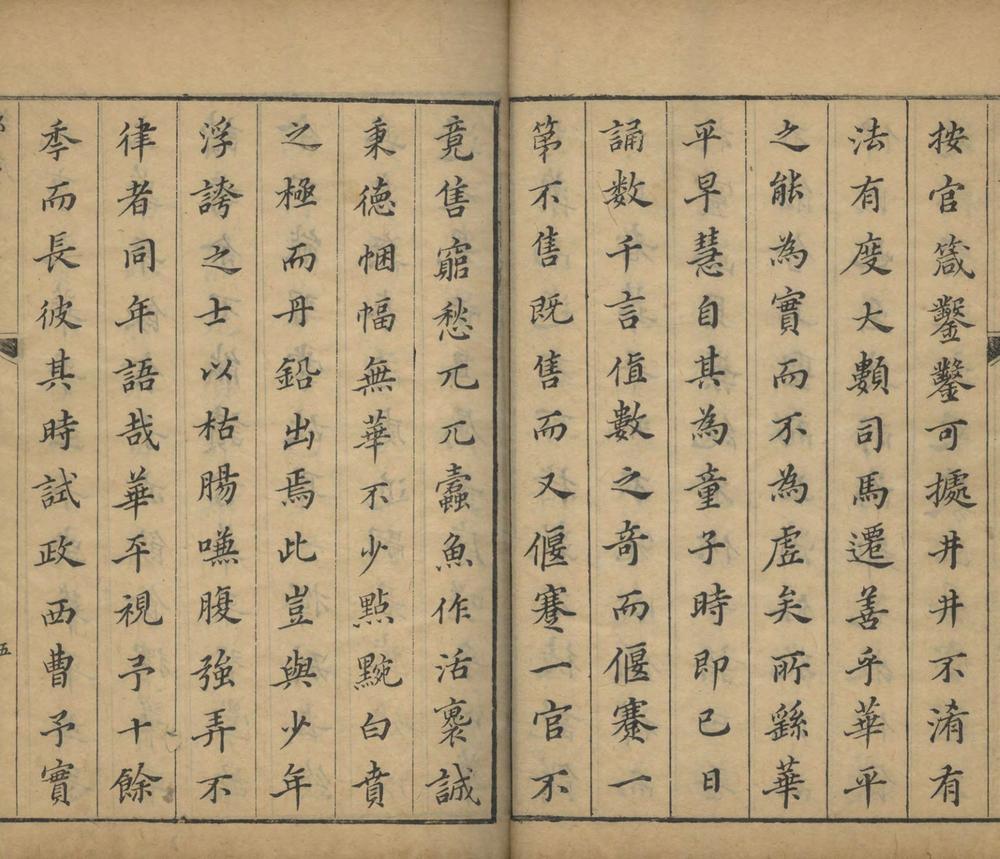 按官箴鑿鑿可㨿井井不淆有
法有度大類司馬遷善乎華平
之能為實而不為虛矣所繇華
平早慧自其為童子時即已日
誦數千言值數之奇而偃蹇一
第不售既售而又偃蹇一官不
竟售窮愁兀兀蠹魚作活褱誠
秉德悃愊無華不少點黦白賁
之極而丹鉛出焉此豈與少年
浮誇之士以枯腸嘸腹強弄不
律者同年語哉華平視予十餘
季而長彼其時試政西曹予實
五